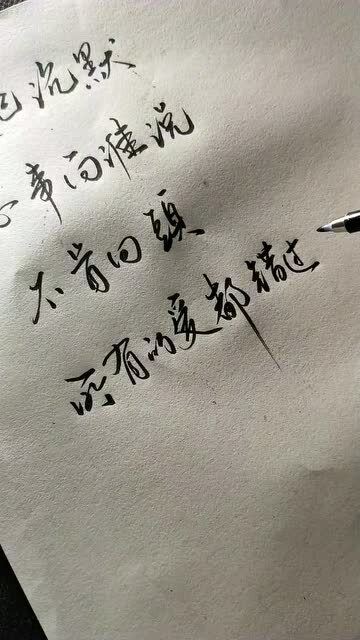 沉默
心事向谁说
不肯回頭
所有的爱都错过